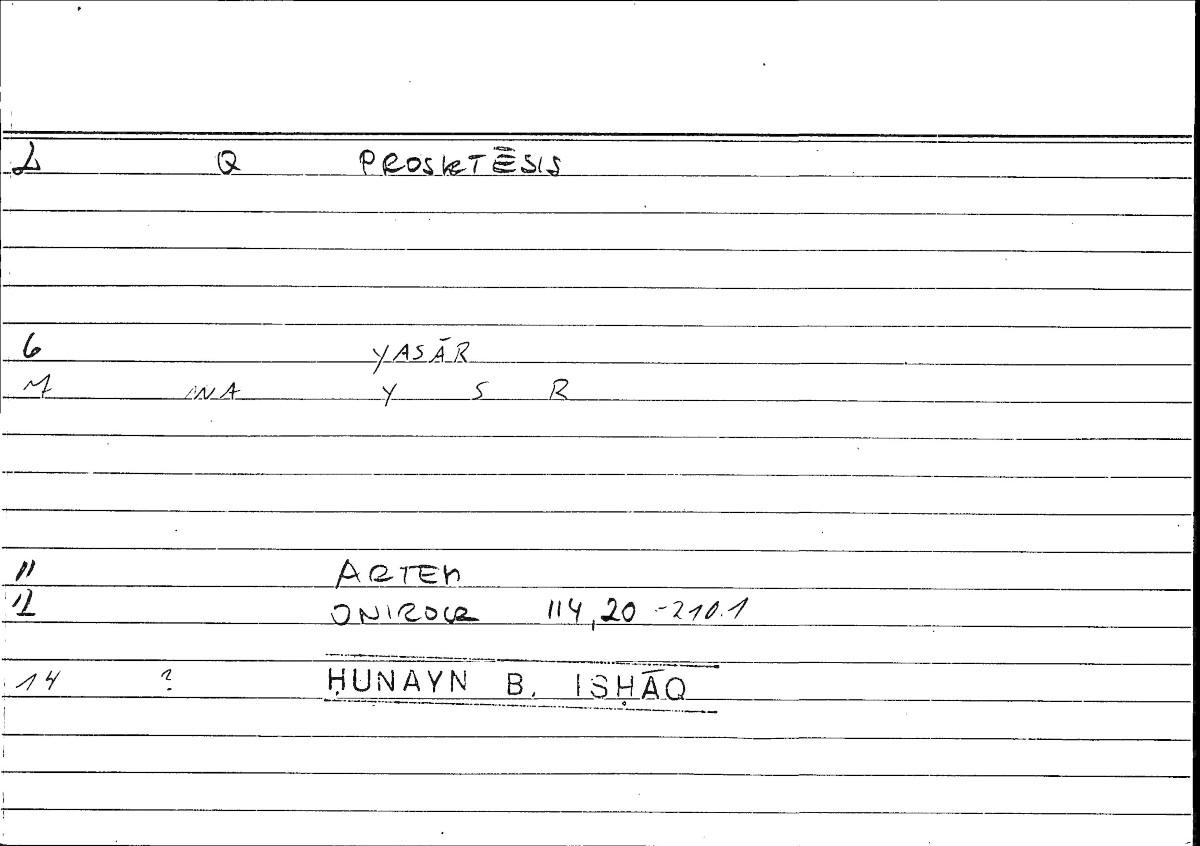 2 Q PROSKTĒSIS
6 YASĀR
7 WA Y S R
11 ARTEM
12 ONIROCR 114,20 -210.1
14 ? ḤUNAYN B. ISḤĀQ